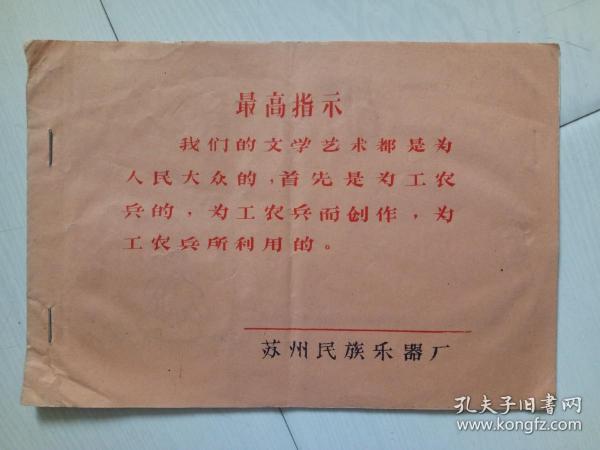 最高指示
我们的文学艺术都是为
人民大众的，首先是为工农
兵的，为工农兵而创作，为
工农兵所利用的。
苏州民族乐器厂
孔夫子旧书网
www.kongfz.com